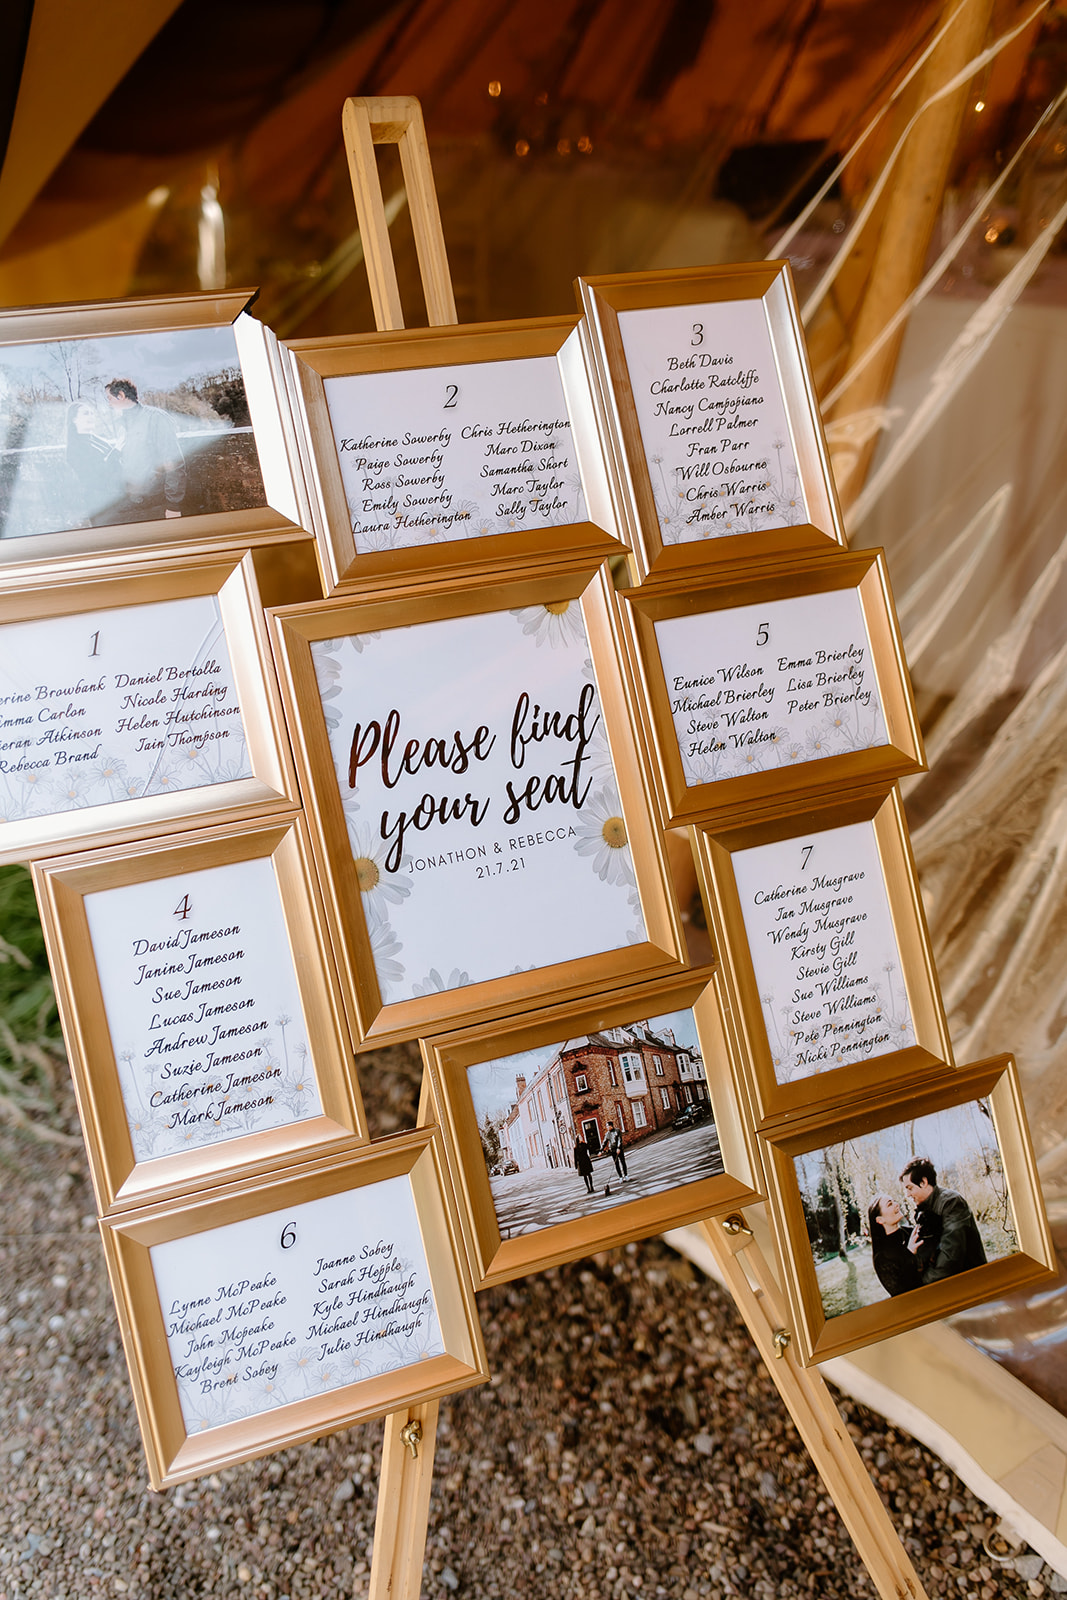 2
Katherine Sowerby
Paige Sowerby
Ross Sowerby
Emily Sowerby
Laura Hetherington
Chris Hetherington
Marc Dixon
Samantha Short
Marc Taylor
Sally Taylor
3
Beth Davis
Charlotte Ratcliffe
Nancy Campopiano
Lorrell Palmer
Fran Parr
Will Osbourne
Chris Warris
Amber Warris
1
Browbank
Carlon
Atkinson
Rebecca Brand
Daniel Bertolla
Nicole Harding
Helen Hutchinson
Iain Thompson
Please find
your seat
JONATHON & REBECCA
21.7.21
5
Eunice Wilson
Michael Brierley
Steve Walton
Helen Walton
Emma Brierley
Lisa Brierley
Peter Brierley
4
David Jameson
Janine Jameson
Sue Jameson
Lucas Jameson
Andrew Jameson
Suzie Jameson
Catherine Jameson
Mark Jameson
7
Catherine Musgrave
Ian Musgrave
Wendy Musgrave
Kirsty Gill
Stevie Gill
Sue Williams
Steve Williams
Pete Pennington
Nicki Pennington
6
Lynne McPeake
Michael McPeake
John Mcpeake
Kayleigh McPeake
Brent Sobey
Joanne Sobey
Sarah Hepple
Kyle Hindhaugh
Michael Hindhaugh
Julie Hindhaugh